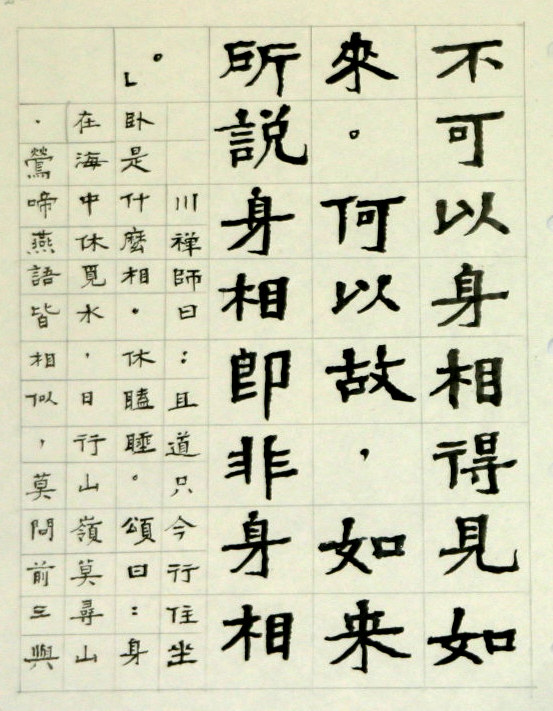 不可以身相得見如
來。何以故，如来
所説身相即非身相
川禅師曰：且道只今行住坐
。」卧是什麽相．休瞌睡。頌曰：身
在海中休覓水，日行山嶺莫尋山
．鶯啼燕語皆相似，莫問前三與